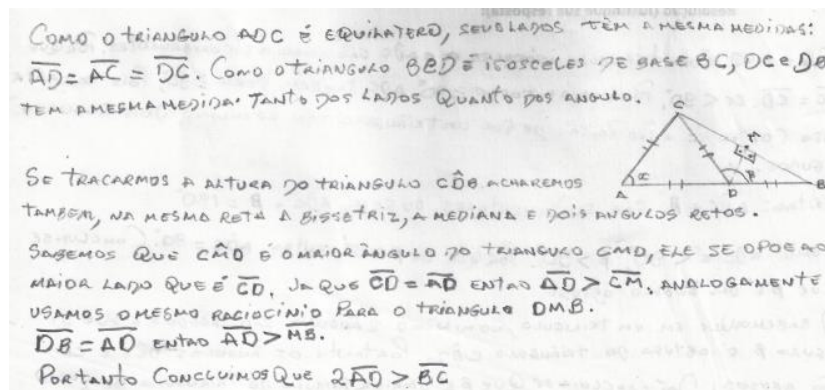 COMO O TRIANGULO ADC É EQUILATERO, SEUS LADOS TÊM A MESMA MEDIDAS:
AD = AC = DC. COMO O TRIANGULO BCD É ISOSCELES DE BASE BC, DC e DB
TEM A MESMA MEDIDA. TANTO DOS LADOS QUANTO DOS ANGULO.
C
M
α
β
A
D
B
SE TRACARMOS A ALTURA DO TRIANGULO CDB ACHAREMOS
TAMBEM, NA MESMA RETA A BISSETRIZ, A MEDIANA E DOIS ANGULOS RETOS.
SABEMOS QUE CMD É O MAIOR ÂNGULO DO TRIANGULO CMD, ELE SE OPOE AO
MAIOR LADO QUE É CD. JA QUE CD = AD ENTAO AD > CM. ANALOGAMENTE
USAMOS O MESMO RACIOCÍNIO PARA O TRIÂNGULO DMB.
DB = AD ENTAO AD > MB.
PORTANTO CONCLUIMOS QUE 2AD > BC